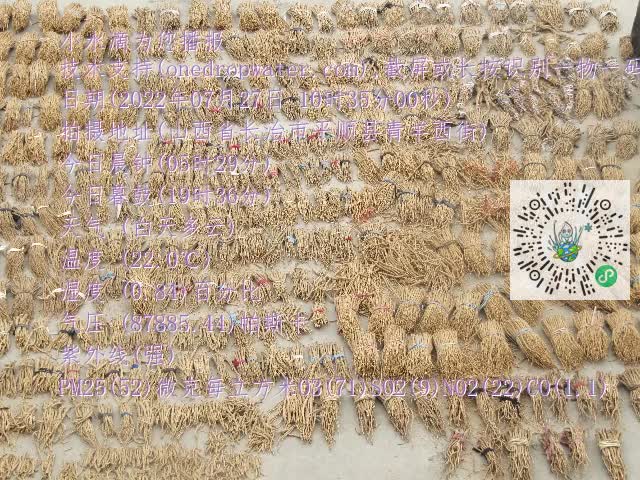 小水滴为您播报
技术支持(onedropwater.com) 截屏或长按识别一物一码
日期(2022年07月27日 16时35分00秒)
拍摄地址(山西省长治市平顺县青羊西街)
今日晨钟(05时29分)
今日暮鼓(19时36分)
天气 (白天多云)
温度 (22.0℃)
湿度 (0.84)百分比
气压 (87885.44)帕斯卡
紫外线(强)
PM25(52)微克每立方米O3(71)SO2(9)NO2(22)CO(1.1)